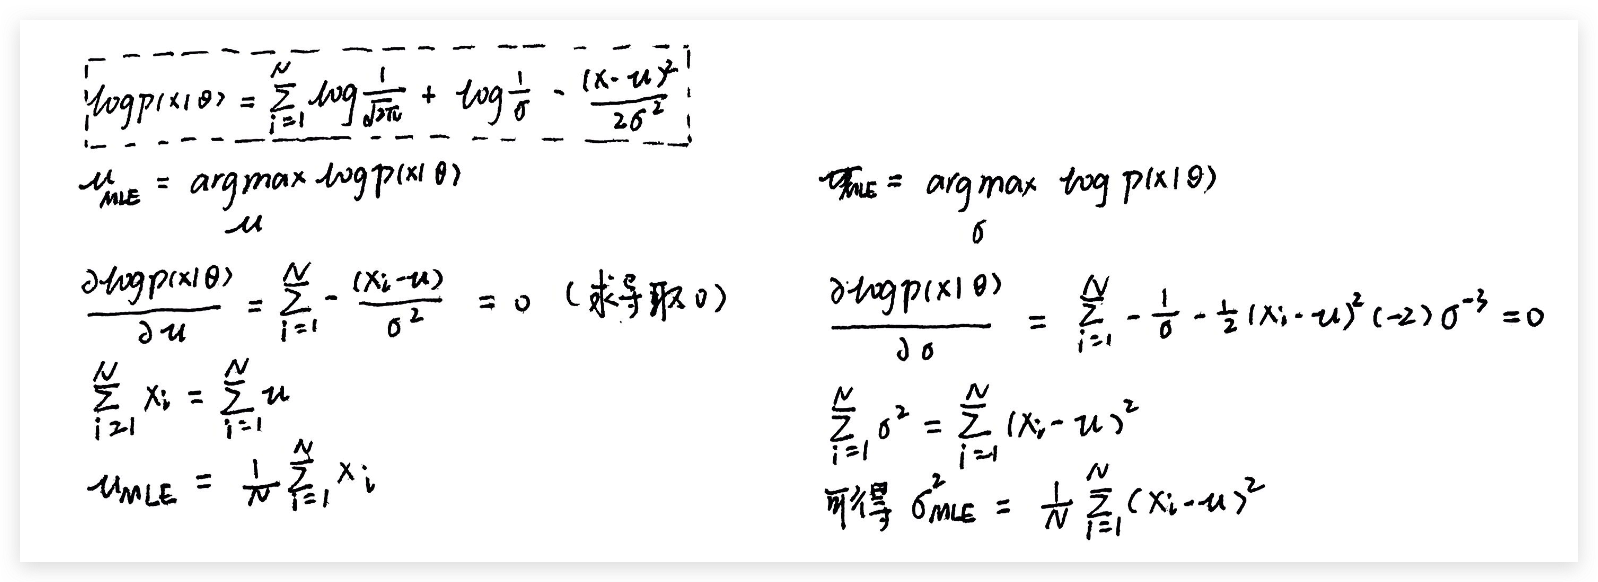 log p(x|θ) = ∑_{i=1}^{N} log 1/√2π + log 1/σ - (x-u)²/2σ²
u_MLE = argmax_u log p(x|θ)
∂log p(x|θ)/∂u = ∑_{i=1}^{N} - (x_i-u)/σ² = 0 (求导取0)
∑_{i=1}^{N} x_i = ∑_{i=1}^{N} u
u_MLE = 1/N ∑_{i=1}^{N} x_i
σ_MLE = argmax_σ log p(x|θ)
∂log p(x|θ)/∂σ = ∑_{i=1}^{N} - 1/σ - 1/2 (x_i-u)² (-2) σ^{-3} = 0
∑_{i=1}^{N} σ² = ∑_{i=1}^{N} (x_i-u)²
可得 σ²_MLE = 1/N ∑_{i=1}^{N} (x_i-u)²